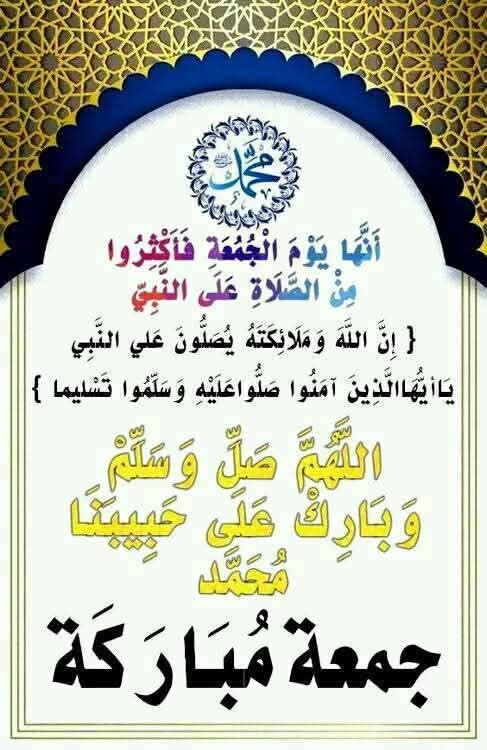 محمد ﷺ
أَنَّهَا يَوْمَ الْجُمُعَةِ فَأَكْثِرُوا
مِنْ الصَّلَاةِ عَلَى النَّبِيّ
{ إِنَّ اللَّهَ وَمَلَائِكَتَهُ يُصَلُّونَ عَلي النَّبِي
يَاأَيُّهَاالَّذِينَ آمَنُوا صَلُّواعَلَيْهِ وَسَلِّمُوا تَسْليما }
اللَّهُمَّ صَلِّ وَسَلِّمْ
وَبَارِكْ عَلى حَبِيبَنَا
مُحَمَّد
جمعة مُبَارَكَة